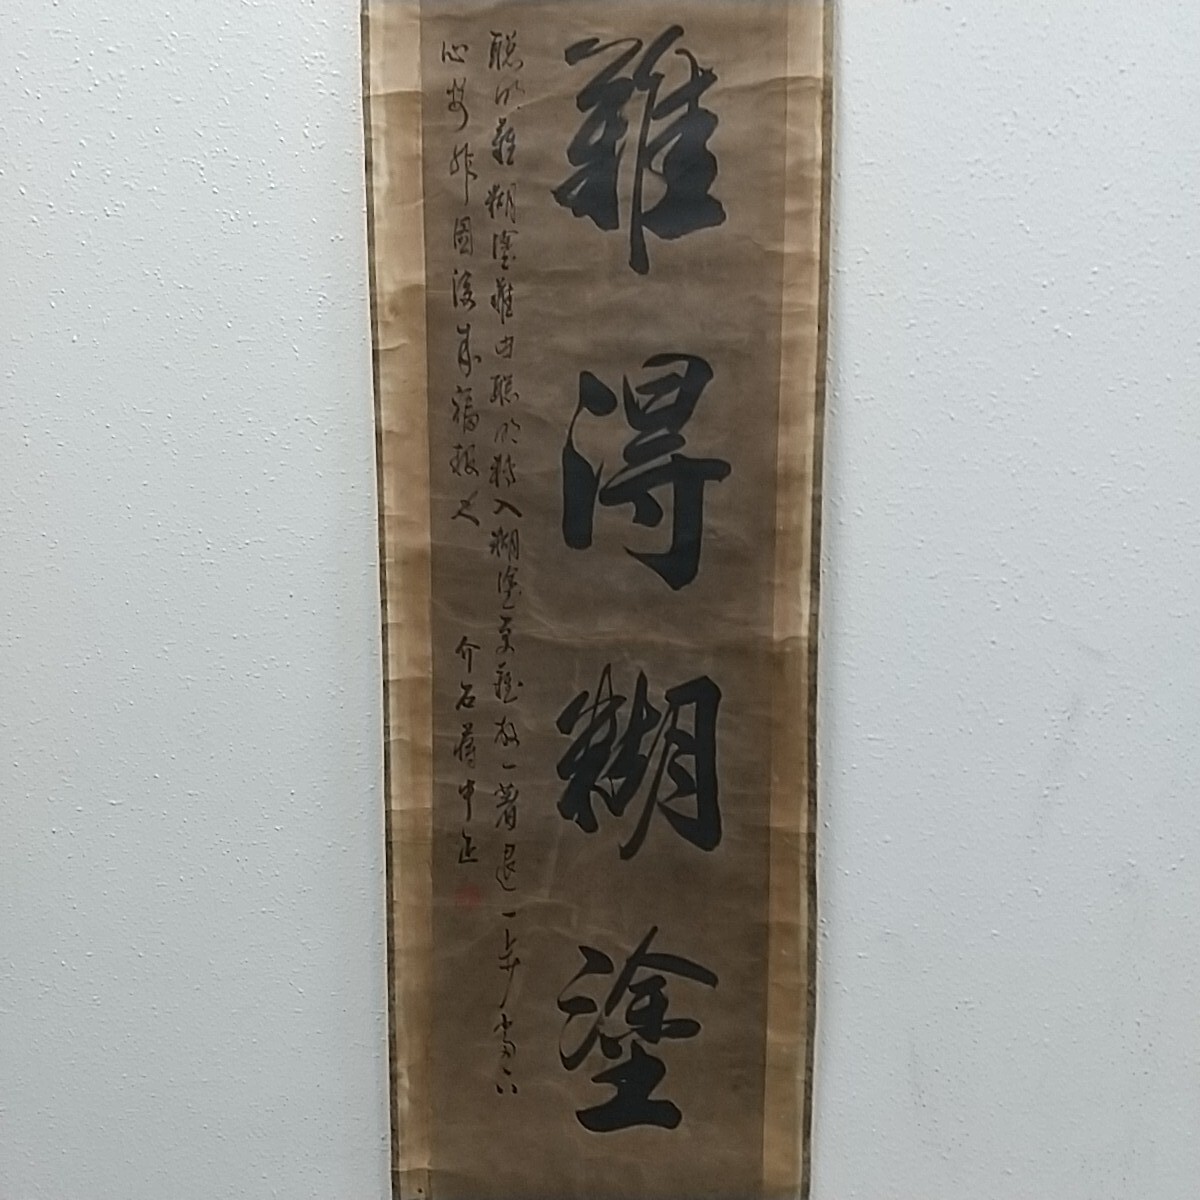 難得糊塗
聪明難糊塗難由聪明轉入糊塗更難放一著退一步當下
心安非圖後來福報也
介石蔣中正